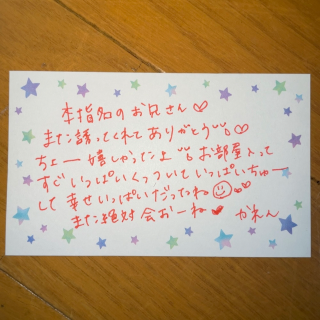 本指名のお兄さん♡
また誘ってくれてありがとう♡
ちょー嬉しかったよ お部屋入って
すぐいっぱいくっついていっぱいちゅー
して幸せいっぱいだったね
また絶対会おーね♥ かれん